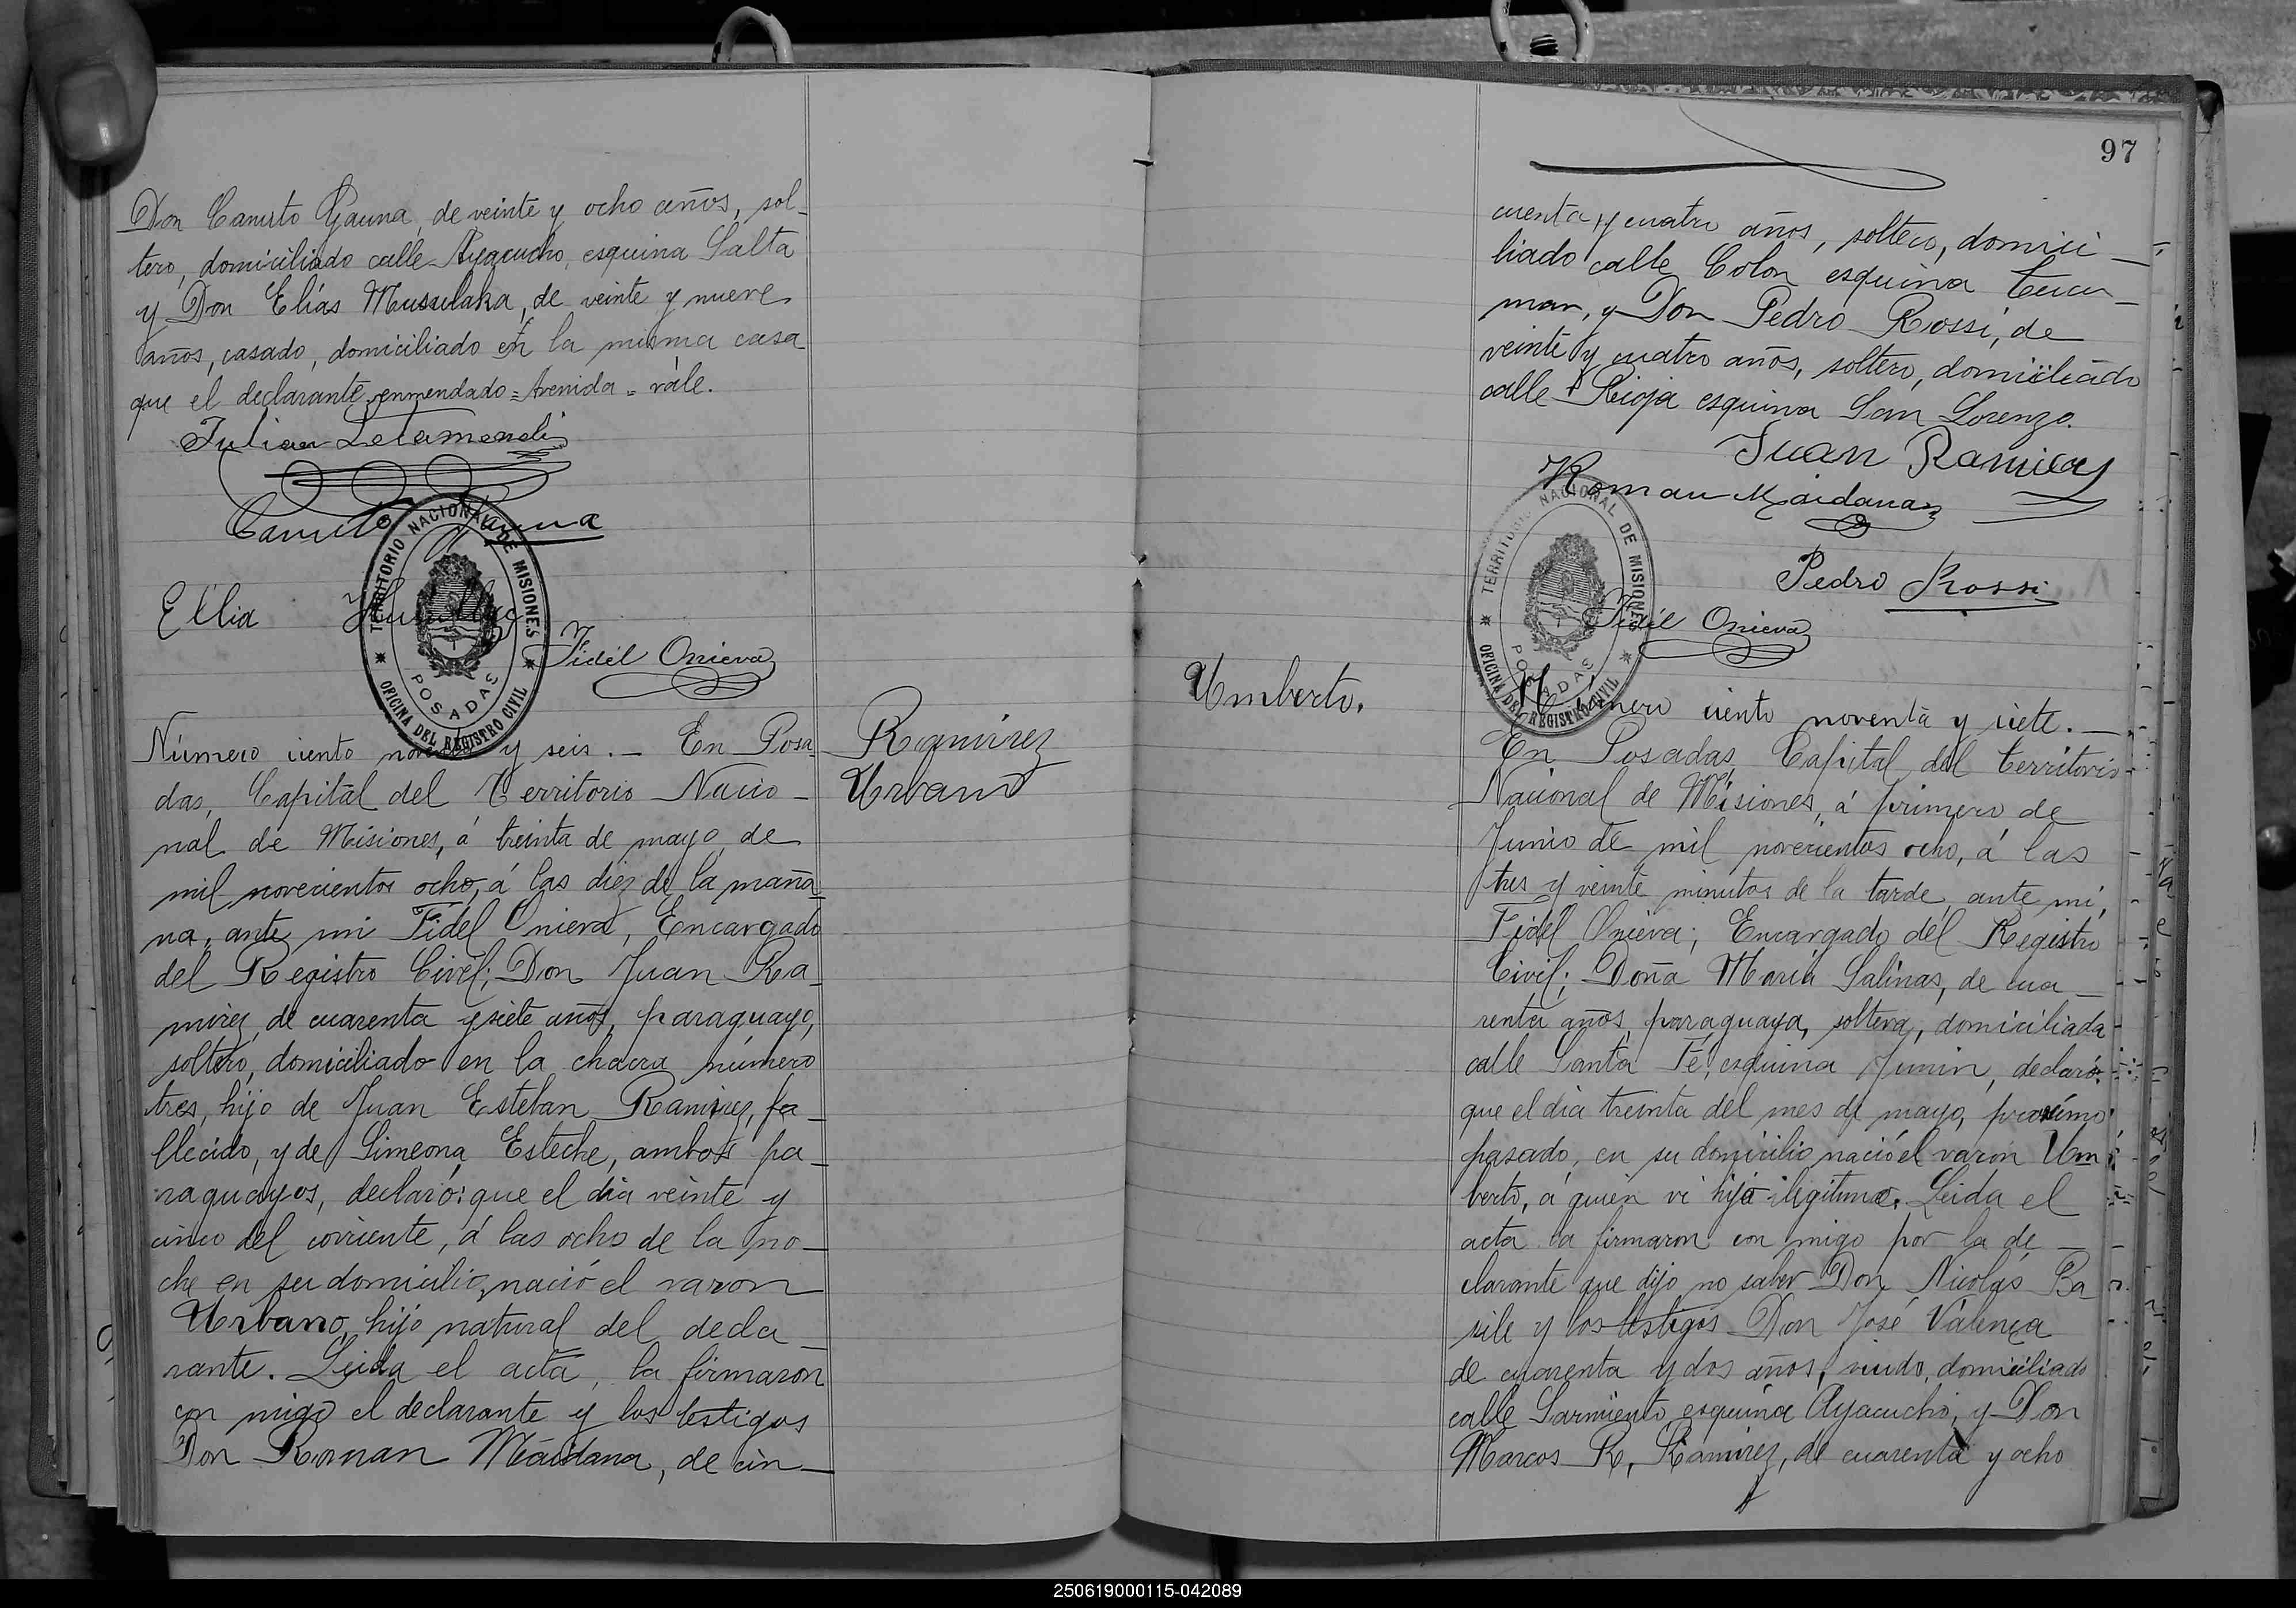 Don Canuto Gauna, de veinte y ocho años, sol-
tero, domiciliado calle Ayacucho, esquina Salta
y Don Elías Mussulaka, de veinte y nueve
años, casado, domiciliado en la misma casa
que el declarante, enmendado = Avenida = vale.
Julian Letamendi
Canuto Gauna
Ellia
TERRITORIO NACIONAL DE MISIONES
POSADAS
OFICINA DEL REGISTRO CIVIL
Fidél Onieva
Ramirez
Urbano
Número ciento noventa y seis. — En Posa
das, Capital del Territorio Nacio-
nal de Misiones, á treinta de mayo, de
mil novecientos ocho, á las diez de la maña
na, ante mi Fidel Onieva, Encargado
del Registro Civil; Don Juan Ra-
mirez, de cuarenta y siete años, paraguayo,
soltero, domiciliado en la chacra número
tres, hijo de Juan Esteban Ramirez, fa-
llecido, y de Simeona Esteche, ambos pa-
raguayos, declaró: que el dia veinte y
cinco del corriente, á las ocho de la no-
che en su domicilio, nació el varon
Urbano, hijo natural del decla-
rante. Leida el acta, la firmaron
con migo el declarante y los testigos
Don Roman Maidana, de cin-
97
cuenta y cuatro años, soltero, domici-
liado calle Colon esquina Tucu-
man, y Don Pedro Rossi, de
veinte y cuatro años, soltero, domiciliado
calle Rioja esquina San Lorenzo.
Juan Ramirez
Roman Maidana
Pedro Rossi
TERRITORIO NACIONAL DE MISIONES
POSADAS
OFICINA DEL REGISTRO CIVIL
Fidél Onieva
Umberto.
Número ciento noventa y siete. —
En Posadas, Capital del territorio
Nacional de Misiones, á primero de
Junio de mil novecientos ocho, á las
tres y veinte minutos de la tarde, ante mi,
Fidel Onieva; Encargado del Registro
Civil; Doña María Salinas, de cua-
renta años, paraguaya, soltera, domiciliada
calle Santa Fé, esquina Junin, declaró:
que el dia treinta del mes de mayo, proximo
pasado, en su domicilio nació el varon Um
berto, á quien vi hijo ilegitimo. Leida el
acta la firmaron con migo por la de-
clarante que dijo no saber Don Nicolás Ba
sile y los testigos Don José Valença
de cuarenta y dos años, viudo, domiciliado
calle Sarmiento esquina Ayacucho, y Don
Marcos R. Ramirez, de cuarenta y ocho
250619000115-042089